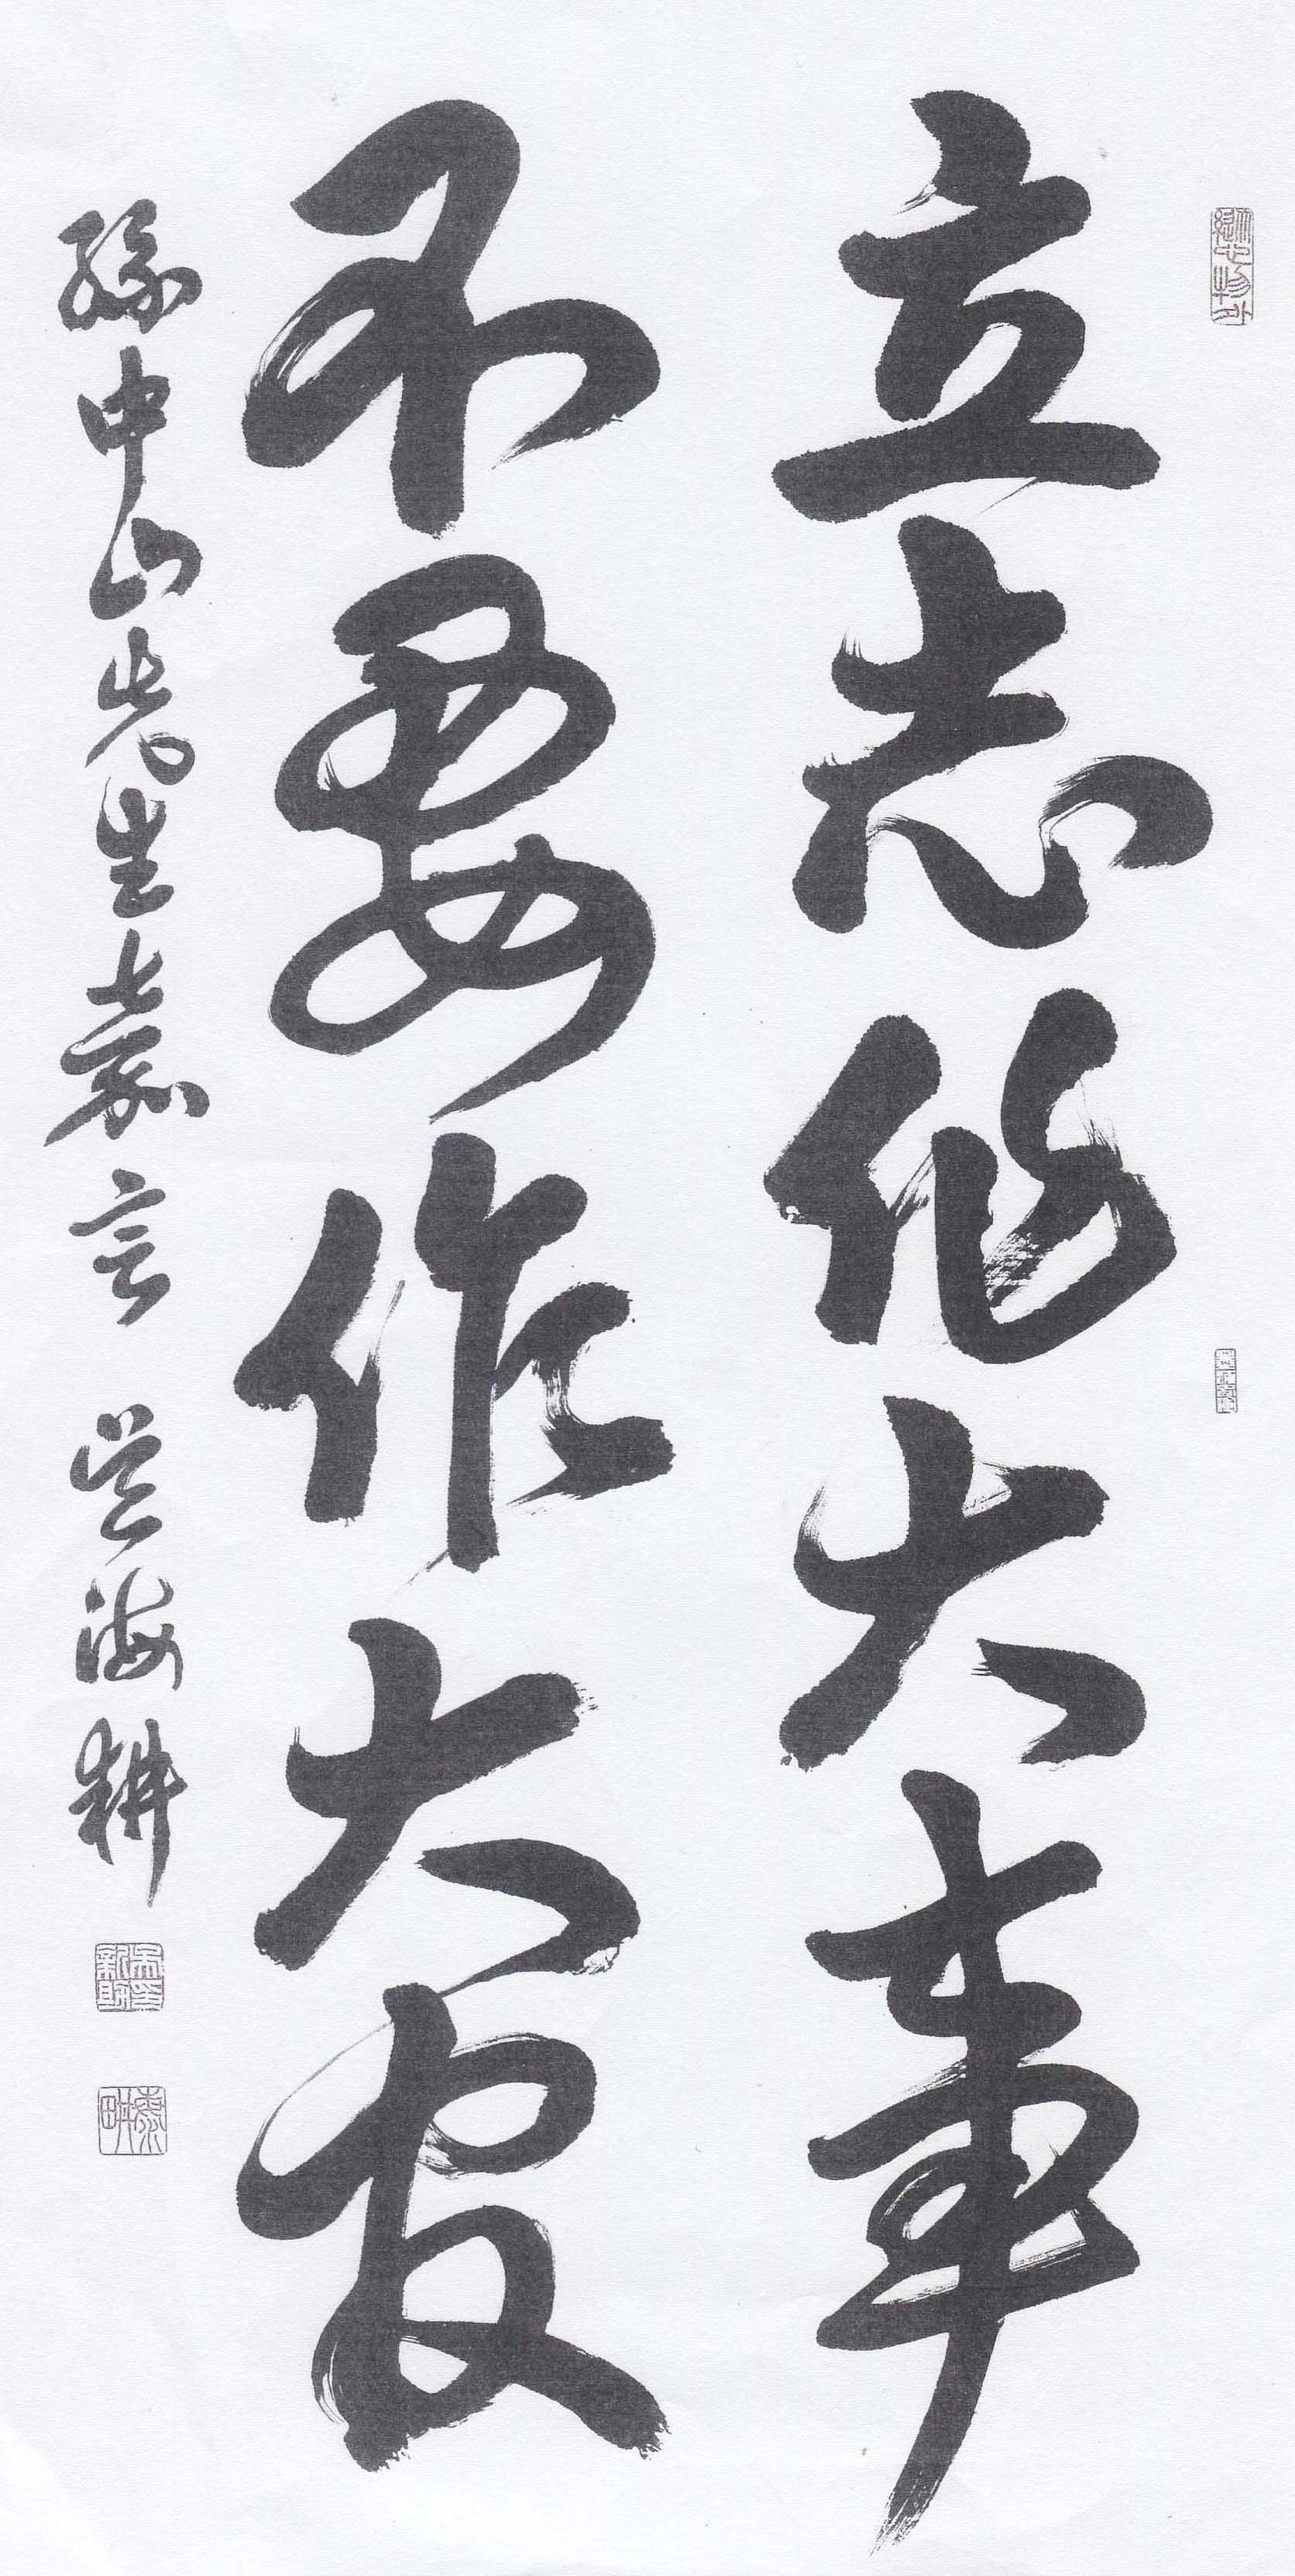 立志作大事
不要作大官
孫中山先生嘉言 吳海耕